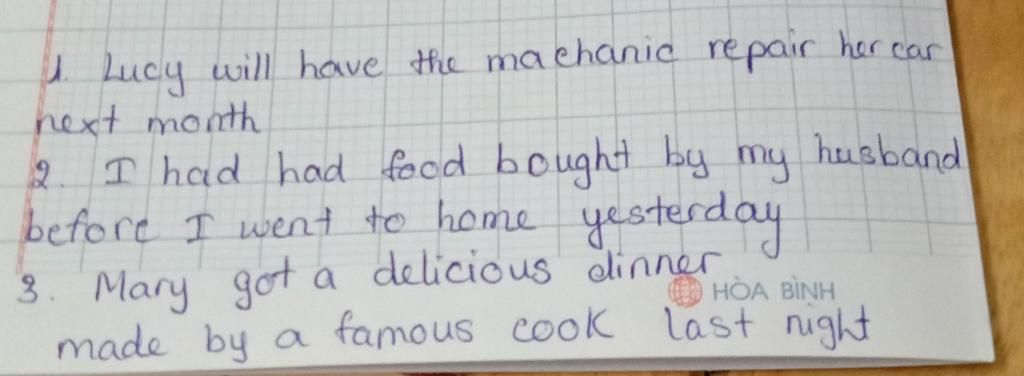 1. Lucy will have the machanic repair her car
next month
2. I had had food bought by my husband
before I went to home yesterday
3. Mary got a delicious dinner
HÒA BÌNH
made by a famous cook last night